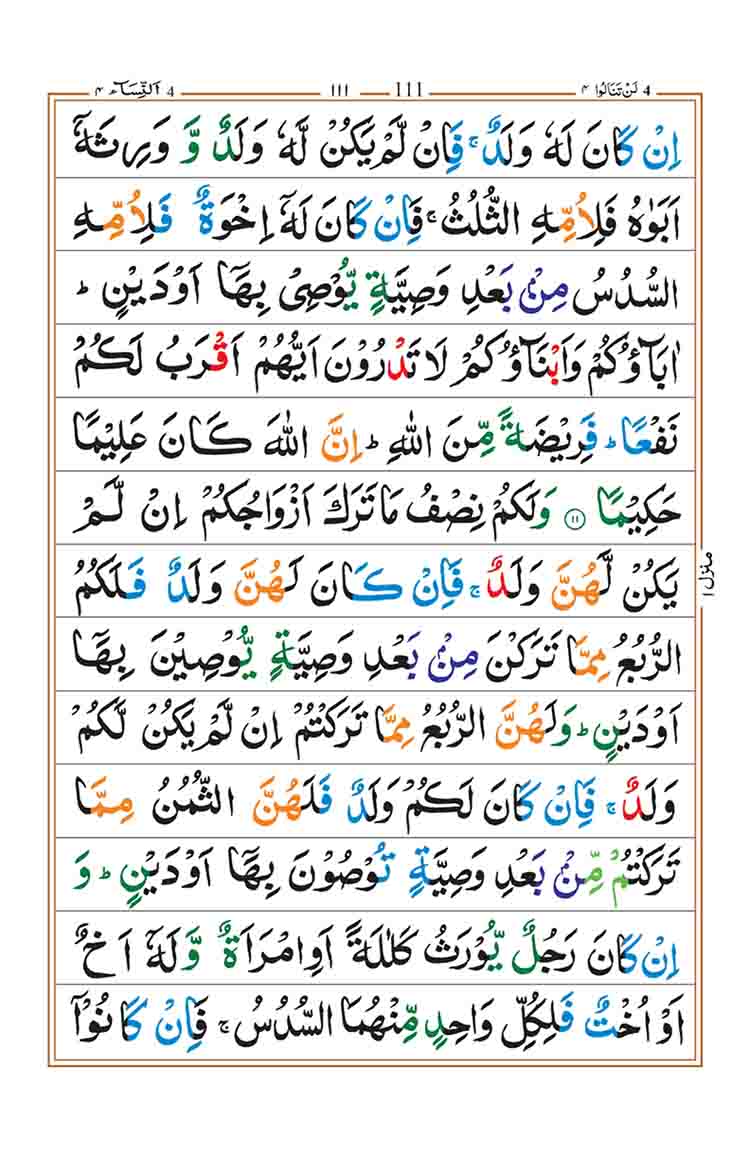 4 لَنْ تَنَالُوا ۴ 111 ١١١ 4 اَلنِّسَآء ۴
اِنْ كَانَ لَهٗ وَلَدٌ ۚ فَاِنْ لَّمْ يَكُنْ لَّهٗ وَلَدٌ وَّ وَرِثَهٗۤ
اَبَوٰهُ فَلِاُمِّهِ الثُّلُثُ ۚ فَاِنْ كَانَ لَهٗۤ اِخْوَةٌ فَلِاُمِّهِ
السُّدُسُ مِنْۢ بَعْدِ وَصِيَّةٍ يُّوْصِىْ بِهَاۤ اَوْ دَيْنٍ ؕ
اٰبَآؤُكُمْ وَاَبْنَآؤُكُمْ لَا تَدْرُوْنَ اَيُّهُمْ اَقْرَبُ لَكُمْ
نَفْعًا ؕ فَرِيْضَةً مِّنَ اللّٰهِ ؕ اِنَّ اللّٰهَ كَانَ عَلِيْمًا
حَكِيْمًا ۝۱۱ وَلَكُمْ نِصْفُ مَا تَرَكَ اَزْوَاجُكُمْ اِنْ لَّمْ
يَكُنْ لَّهُنَّ وَلَدٌ ۚ فَاِنْ كَانَ لَهُنَّ وَلَدٌ فَلَكُمُ
الرُّبُعُ مِمَّا تَرَكْنَ مِنْۢ بَعْدِ وَصِيَّةٍ يُّوْصِيْنَ بِهَاۤ
اَوْ دَيْنٍ ؕ وَلَهُنَّ الرُّبُعُ مِمَّا تَرَكْتُمْ اِنْ لَّمْ يَكُنْ لَّكُمْ
وَلَدٌ ۚ فَاِنْ كَانَ لَكُمْ وَلَدٌ فَلَهُنَّ الثُّمُنُ مِمَّا
تَرَكْتُمْ مِّنْۢ بَعْدِ وَصِيَّةٍ تُوْصُوْنَ بِهَاۤ اَوْ دَيْنٍ ؕ وَ
اِنْ كَانَ رَجُلٌ يُّوْرَثُ كَلٰلَةً اَوِ امْرَاَةٌ وَّلَهٗۤ اَخٌ
اَوْ اُخْتٌ فَلِكُلِّ وَاحِدٍ مِّنْهُمَا السُّدُسُ ۚ فَاِنْ كَانُوْۤا
منزل ١